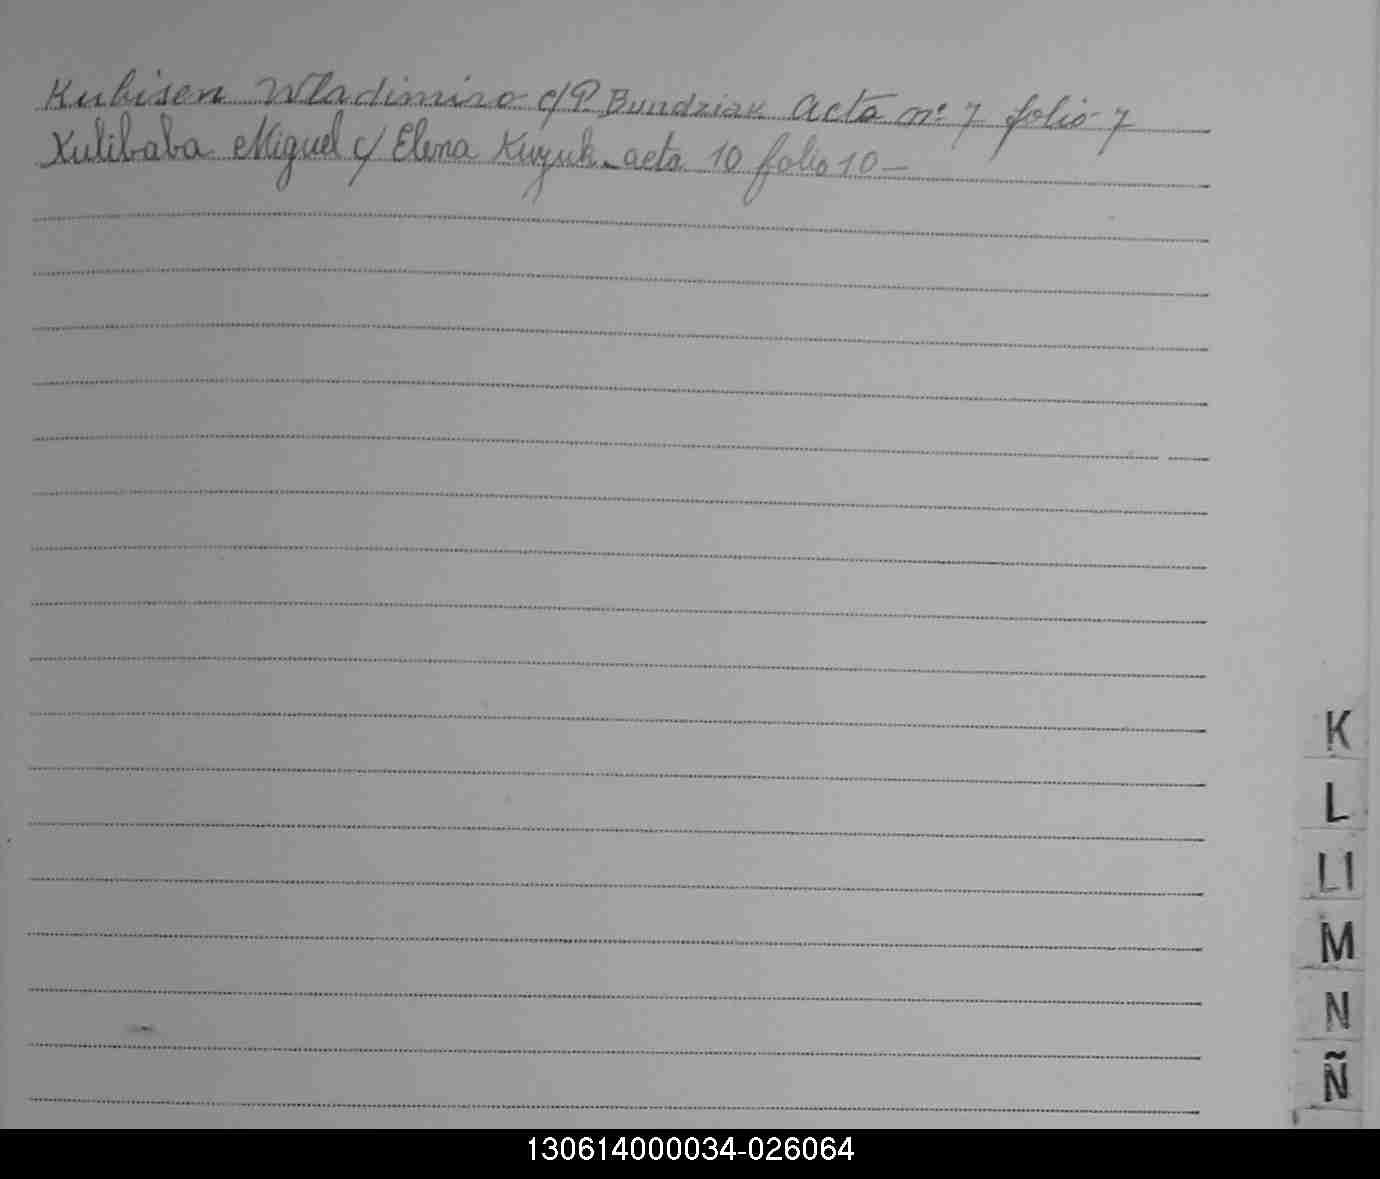 Kubisen Wladimiro c/P Bundziak Acta nº 7 folio 7
Kulibaba Miguel c/ Elena Kuzuk - acta 10 folio 10 -
K
L
Ll
M
N
Ñ
130614000034-026064